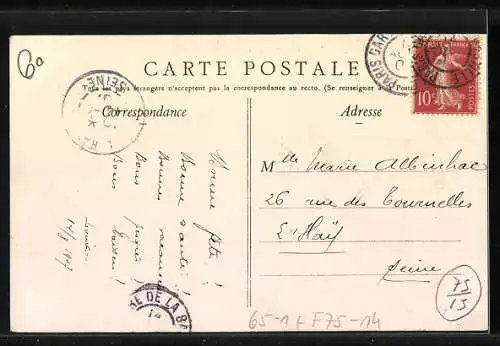 6a
CARTE POSTALE
Tous les pays étrangers n'acceptent pas la correspondance au recto. (Se renseigner à la Poste)
Correspondance
Adresse
Bonne fête!
Bonne santé!
Bonnes vacances!
Bons
Bons baisers!
Louise
14/8 1907
Mlle Marie Albinhac
26 rue des Tournelles
L'Haÿ
Seine
PARIS GARE
SEINE
RE DE LA BA
14
RÉPUBLIQUE FRANÇAISE
10c
POSTES
65-1 + F75-14
75/15